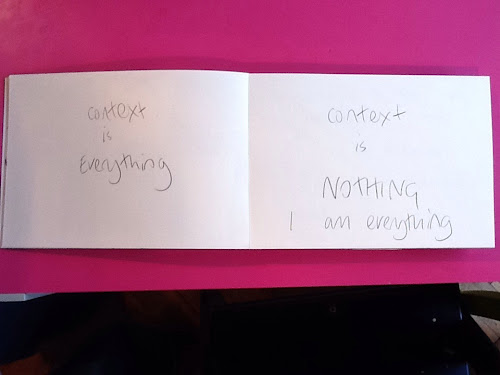 context
is
Everything
context
is
NOTHING
I am everything